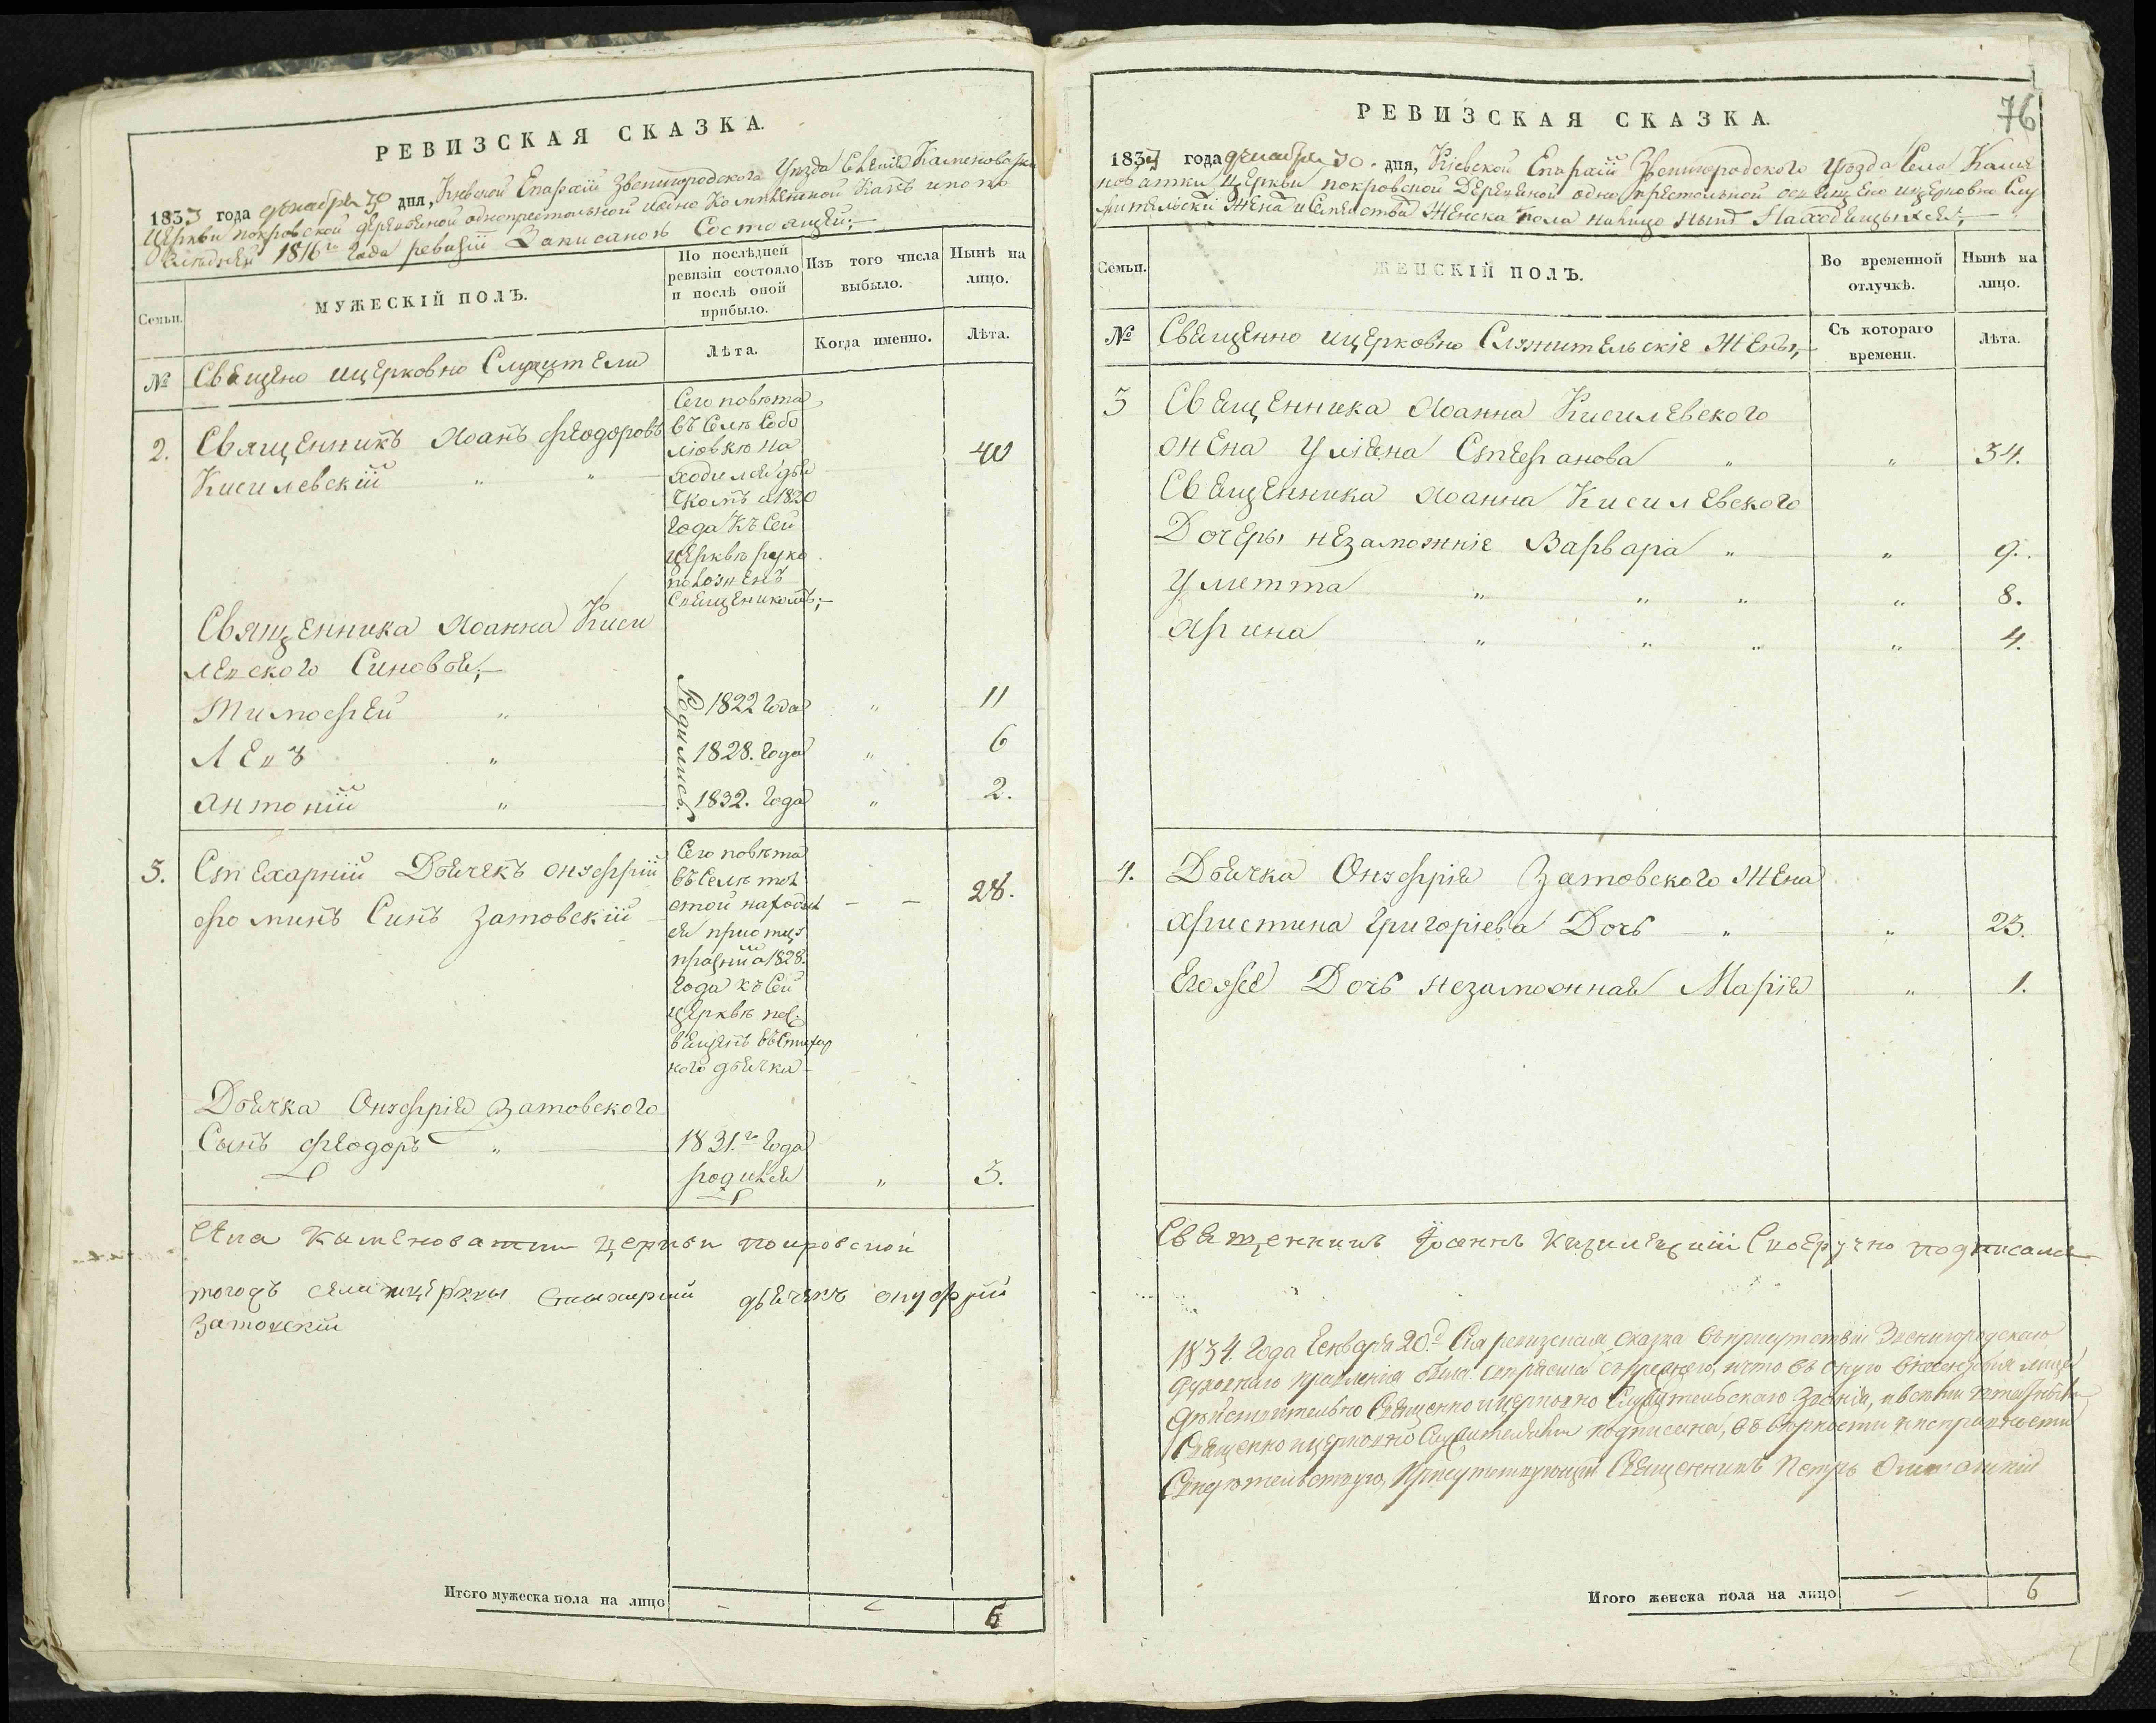 РЕВИЗСКАЯ СКАЗКА.
1833 года декабря 30 дня, Киевской Епархіи Звенигородского Уезда Каменоватки
Церкви покровской деревяной однопрестольной
1816го Года ревизіи Записанъ Состоящей;
Семьи.
МУЖЕСКІЙ ПОЛЪ.
По послѣдней ревизіи состояло и послѣ оной прибыло.
Изъ того числа выбыло.
Нынѣ на лицо.
№
Священо ицерковно Служители
Лѣта.
Когда именно.
Лѣта.
2.
Священникъ Иоанъ феодоровъ
Кисилевскій " "
40
Сего повѣта
въ Селѣ Собо
лювкю на
ходился дья
чкомъ а 1820
года Къ Сей
церквѣ руко
положенъ
Священикомъ;
Священника Иоанна Киси
левского Синовья;
Родились
Тимофей " 1822 Года " 11
Левъ " 1828. Года " 6
антоній " 1832. Года " 2.
3.
Стехарній Дьячекъ онуфрій
фоминъ Синъ Затовскій
28.
Сего повѣта
въ Селѣ тол
стой находил
ся при отцу
а 1828.
Года къ Сей
церквѣ пос
вященъ въ Стихар
ного дьячка
Дьячка Онуфрія Затовского
Сынъ феодоръ " 1831.го Года
родился " 3.
Села Каменоватки Церкви покровской
тогожъ села ицеркви стихарний дьячекъ онуфрій
Затовскій
Итого мужеска пола на лицо
6
76
РЕВИЗСКАЯ СКАЗКА.
1833 года декабря 30. дня, Кіевской Епархіи Звенигородского Уезда Села Каме
новатки Церкви покровской Деревяной однопрестольной о священо ицерковно Слу
жительскіи Жена и Семейства Женска пола налицо ныне Находящихся;
Семьи.
ЖЕНСКІЙ ПОЛЪ.
Во временной отлучкѣ.
Нынѣ на лицо.
№
Священно ицерковно Служительскіе Жены;
Съ котораго времени.
Лѣта.
3
Священника Иоанна Кисилевского
жена Уліяна Стефанова " " 34.
Священника Иоанна Кисилевского
Дочеры незаможніе Варвара " " 9.
Улитта " " " " 8.
Ирина " " " " 4.
4.
Дьячка Онуфрія Затовского Жена
Христина Григоріева Дочь " " 23.
Егоже Дочь незаможная Марія " 1.
Священникъ Іоаннъ Кизилевскій Своеручно подписался
1834. Года Генваря 20.д Сія ревизская сказка въ присутствіи Звенигородского
духовнаго правленія была что въ оную внесены лица
действительно Священно ицерковно Служительскаго Званія, и всѣми
Священно ицерковно Служителями подписана, въ вѣрности и исправности
Свидѣтельствую, Присутствующій Священникъ Петръ
Итого женска пола на лицо
6